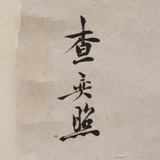 查奕照